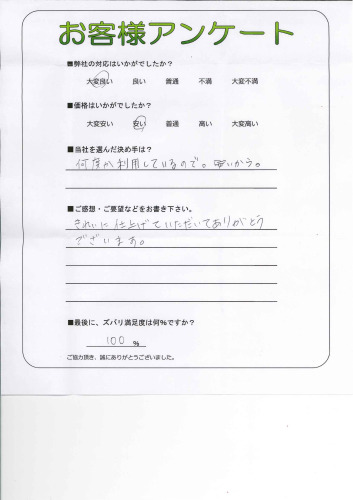 お客様アンケート
■弊社の対応はいかがでしたか?
大変良い 良い 普通 不満 大変不満
■価格はいかがでしたか?
大変安い 安い 普通 高い 大変高い
■当社を選んだ決め手は?
何度か利用しているので。安いから。
■ご感想・ご要望などをお書き下さい。
きれいに仕上げていただいてありがとう
ございます。
■最後に、ズバリ満足度は何%ですか?
100 %
ご協力頂き、誠にありがとうございました。